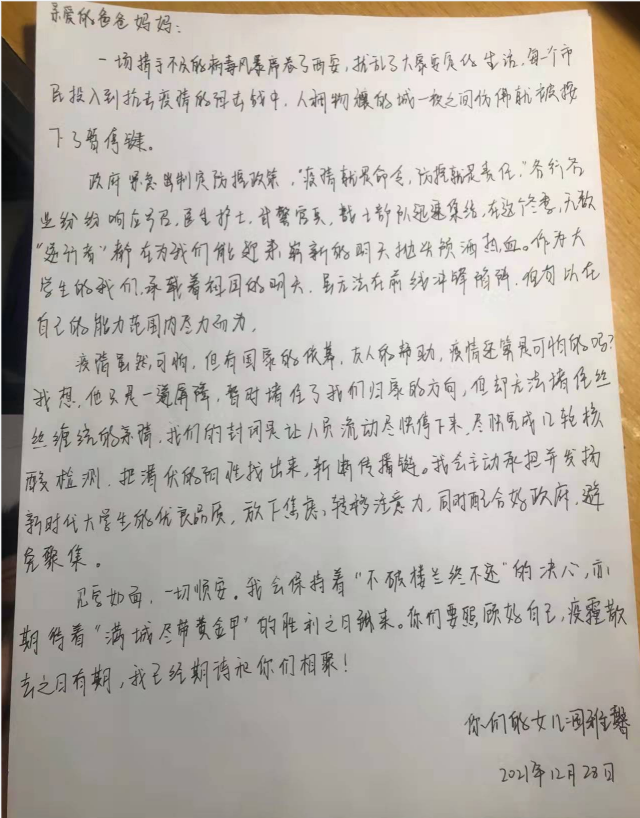 亲爱的爸爸妈妈：
一场措手不及的病毒风暴席卷了西安，扰乱了大家原原的生活，每一个市
民投入到抗击疫情的阻击战中，人稠物穰的城一夜之间仿佛就被按
下了暂停键。
政府紧急出制定防控政策，“疫情就是命令，防控就是责任，”各行各
业纷纷响应号召，医生护士，甘警官兵，战士部队迅速集结，在这个冬季，无数
“逆行者”都在为我们能迎来崭新的明天抛头颅洒热血。作为大
学生的我们，承载着祖国的明天，虽无法在前线冲锋陷阵，但可以在
自己的能力范围内尽力而为。
疫情虽然可怕，但有国家的依靠，友人的帮助，疫情还算是可怕的吗？
我想，他只是一道屏障，暂时堵住了我们归家的方向，但却无法堵住丝
丝缠绕的亲情，我们的封闭是让人员流动尽快停下来，尽快完成12轮核
酸检测，把潜伏的阳性找出来，斩断传播链。我会主动承担并发扬
新时代大学生的优良品质，放下焦虑，转移注意力，同时配合好政府，避
免聚集。
见字如面，一切顺安。我会保持着“不破楼兰终不还”的决心，亦
期待着“满城尽带黄金甲”的胜利之日到来。你们要照顾好自己，疫霾散
去之日有期，我已经期待和你们相聚！
你们的女儿：雅馨
2021年12月28日